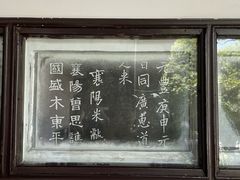 元豐庚申元
日同廣惠道
人来
襄陽米黻
襄陽曾思
盛木東平